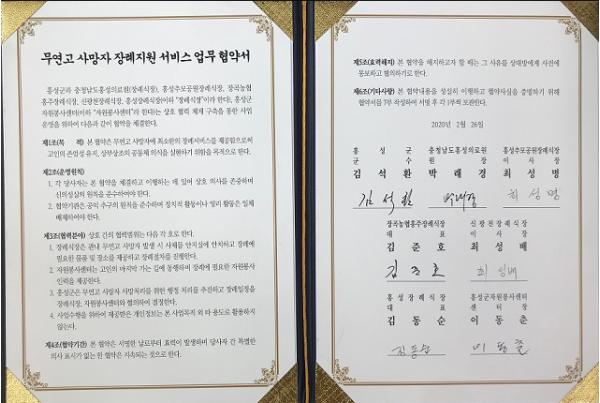 무연고 사망자 장례지원 서비스 업무 협약서
홍성군과 충청남도홍성의료원(장례식장), 홍성추모공원장례식장, 장곡농협
홍주장례식장, 신광천장례식장, 홍성장례식장(이하 "장례식장"이라 한다), 홍성군
자원봉사센터(이하 "자원봉사센터"라 한다)는 상호 협력 체계 구축을 통한 사업
운영을 위하여 다음과 같이 협약을 체결한다.
제1조(목 적) 본 협약은 무연고 사망자에 최소한의 장례서비스를 제공함으로써
고인의 존엄성 유지, 상부상조의 공동체 의식을 실현하기 위함을 목적으로 한다.
제2조(운영원칙)
1. 각 당사자는 본 협약을 체결하고 이행하는 데 있어 상호 의사를 존중하며
신의성실의 원칙을 준수하여야 한다.
2. 협약기관은 공익 추구의 원칙을 준수하며 정치적 활동이나 영리 활동은 일체
배제하여야 한다.
제3조(협약분야) 상호 간의 협력범위는 다음 각 호로 한다.
1. 장례식장은 관내 무연고 사망자 발생 시 사체를 안치실에 안치하고 장례에
필요한 물품 및 장소를 제공하고 장례절차를 진행한다.
2. 자원봉사센터는 고인의 마지막 가는 길에 동행하며 장례에 필요한 자원봉사
인력을 제공한다.
3. 홍성군은 무연고 사망자 사망처리를 위한 행정 처리를 추진하고 장례일정을
장례식장, 자원봉사센터와 협의하여 결정한다.
4. 사업수행을 위하여 제공받은 개인정보는 본 사업목적 외 타 용도로 활용하지
않는다.
제4조(협약기간) 본 협약은 서명한 날로부터 효력이 발생하며 당사자 간 특별한
의사 표시가 없는 한 협약은 지속되는 것으로 한다.
제5조(효력해지) 본 협약을 해지하고자 할 때는 그 사유를 상대방에게 사전에
통보하고 협의하기로 한다.
제6조(기타사항) 본 협약내용을 성실히 이행하고 협약사실을 증명하기 위해
협약서를 7부 작성하여 서명 후 각 1부씩 보관한다.
2020년 2월 26일
홍성군 충청남도홍성의료원 홍성추모공원장례식장
군수 원장 이사장
김석환 박래경 최성명
김석환 박래경 최성명
장곡농협홍주장례식장 신광천장례식장
대표 이사장
김준호 최성배
김준호 최성배
홍성장례식장 홍성군자원봉사센터
대표 센터장
김동순 이동춘
김동순 이동춘